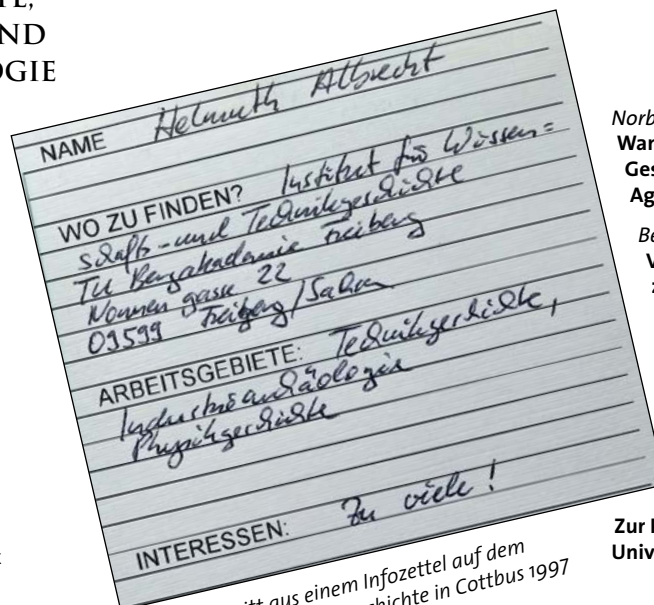 TE,
ND
OGIE
NAME Helmuth Albrecht
WO ZU FINDEN? Institut für Wissen=
schafts- und Technikgeschichte
TU Bergakademie Freiberg
Nonnengasse 22
09599 Freiberg/Sachsen
ARBEITSGEBIETE: Technikgeschichte,
Industriearchäologie
Physikgeschichte
INTERESSEN: Zu viele!
itt aus einem Infozettel auf dem
chichte in Cottbus 1997
Norb
War
Ges
Ag
Be
V
z
Zur
Univ